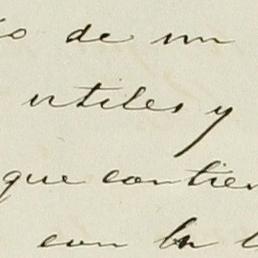 de un
utiles y
que contien
con